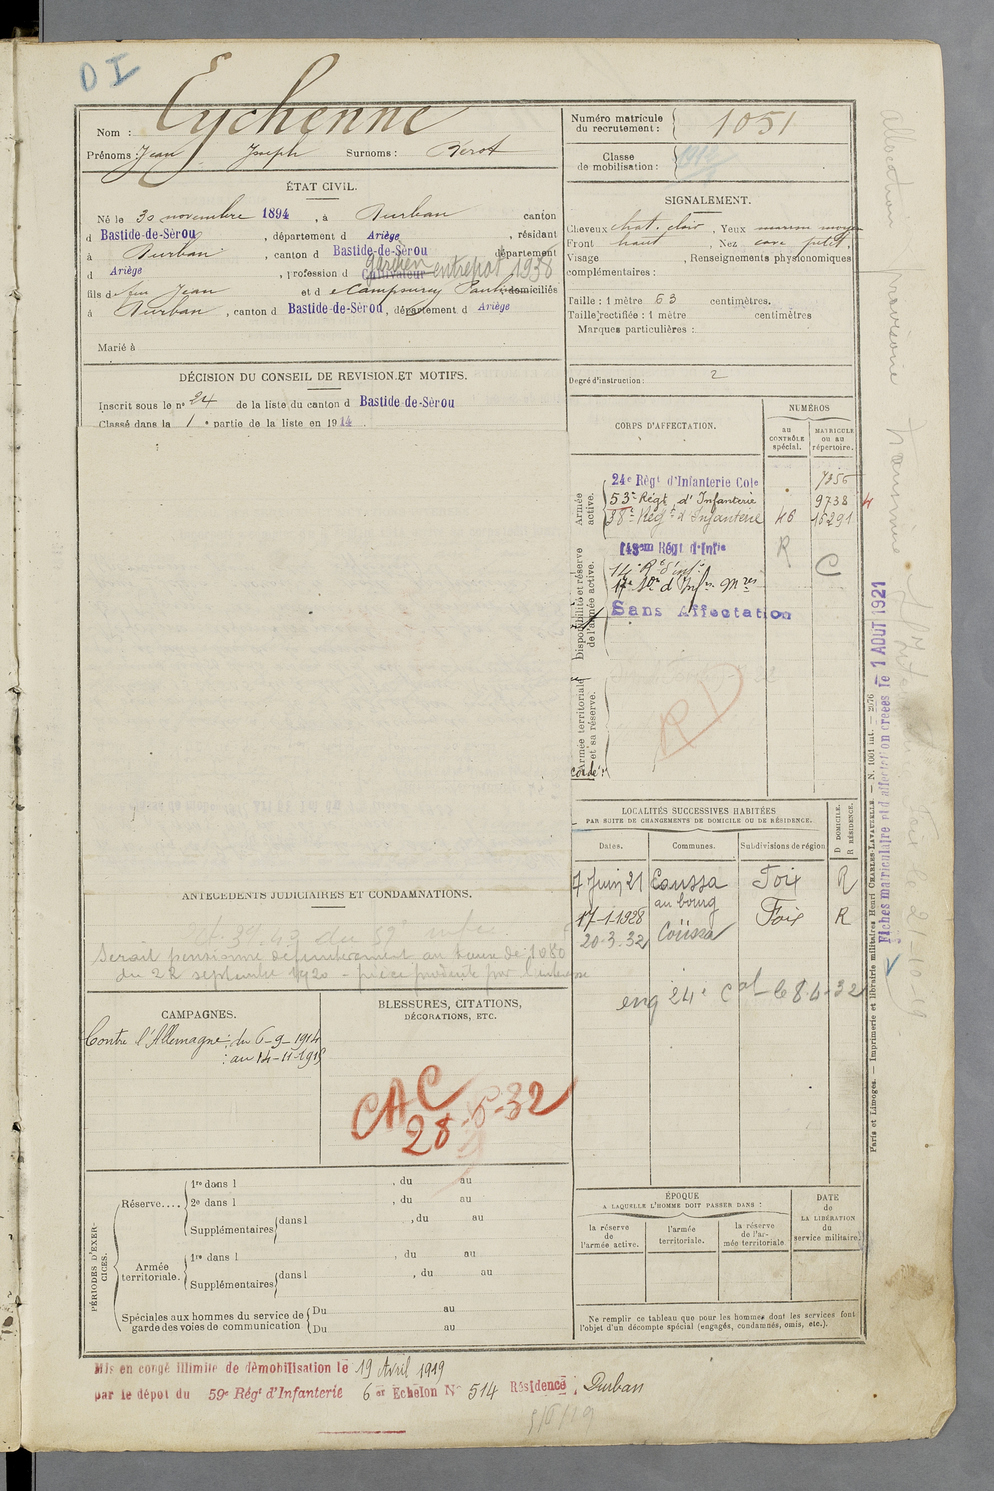 DI
Nom : Eychenne
Prénoms : Jean Joseph Surnoms : Berot
Numéro matricule du recrutement : 1051
Classe de mobilisation : 1912
ÉTAT CIVIL.
Né le 30 novembre 1894, à Durban canton
d Bastide-de-Sèrou, département d Ariège, résidant
à Durban, canton d Bastide-de-Sèrou département
d Ariège, profession d Cultivateur gardien entrepot 1938
fils d feu Jean et d domiciliés
à Durban, canton d Bastide-de-Sèrou, département d Ariège
Marié à
SIGNALEMENT.
Cheveux chat. clair, Yeux marron moyen
Front haut, Nez cave petit.
Visage , Renseignements physionomiques
complémentaires :
Taille : 1 mètre 63 centimètres.
Taille rectifiée : 1 mètre centimètres
Marques particulières :
Degré d'instruction : 2
DÉCISION DU CONSEIL DE REVISION ET MOTIFS.
Inscrit sous le n° 24 de la liste du canton d Bastide-de-Sèrou
Classé dans la 1e partie de la liste en 1914.
CORPS D'AFFECTATION.
NUMÉROS
au CONTRÔLE spécial.
MATRICULE ou au répertoire.
Armée active.
24e Règt d'Infanterie Cole 7356
53e Régt d'Infanterie 9738
38e Régt d'Infanterie 46 15291
Disponibilité et réserve de l'armée active.
143em Régt d'Infie R C
14e R d'inf.
17e d'Infie
Sans Affectation
Armée territoriale et sa réserve.
RD
LOCALITÉS SUCCESSIVES HABITÉES
PAR SUITE DE CHANGEMENTS DE DOMICILE OU DE RÉSIDENCE.
Dates. Communes. Subdivisions de région D DOMICILE. R RÉSIDENCE.
7 Juin 21 Coussa Foix R
au bourg
17-1-1928 Foix R
20-3-32 Coüssa
eng 24e Cal le 8-4-32
ANTÉCÉDENTS JUDICIAIRES ET CONDAMNATIONS.
Serait pensionné définitivement au taux de 1080
du 22 septembre 1920 - pièce présentée par l'intéressé
CAMPAGNES.
Contre l'Allemagne : du 6-9-1914
: au 14-11-1915
BLESSURES, CITATIONS,
DÉCORATIONS, ETC.
CAC
28-6-32
PÉRIODES D'EXERCICES.
Réserve....
1re dans l , du au
2e dans l , du au
Supplémentaires dans l , du au
Armée territoriale.
1re dans l , du au
Supplémentaires dans l , du au
Spéciales aux hommes du service de garde des voies de communication
Du au
Du au
ÉPOQUE
A LAQUELLE L'HOMME DOIT PASSER DANS :
la réserve de l'armée active.
l'armée territoriale.
la réserve de l'armée territoriale
DATE de LA LIBÉRATION du service militaire.
Ne remplir ce tableau que pour les hommes dont les services font
l'objet d'un décompte spécial (engagés, condamnés, omis, etc.).
Mis en congé illimité de démobilisation le 19 Avril 1919
par le dépôt du 59e Régt d'Infanterie 6e Echelon N° 514 Résidence : Durban
Paris et Limoges. — Imprimerie et librairie militaires Henri CHARLES-LAVAUZELLE. — N. 1001 int. — 2/76
Fiches matriculaire et d'affectation créées le 1 AOUT 1921
allocation provisoire transmise
Foix le 21-10-19